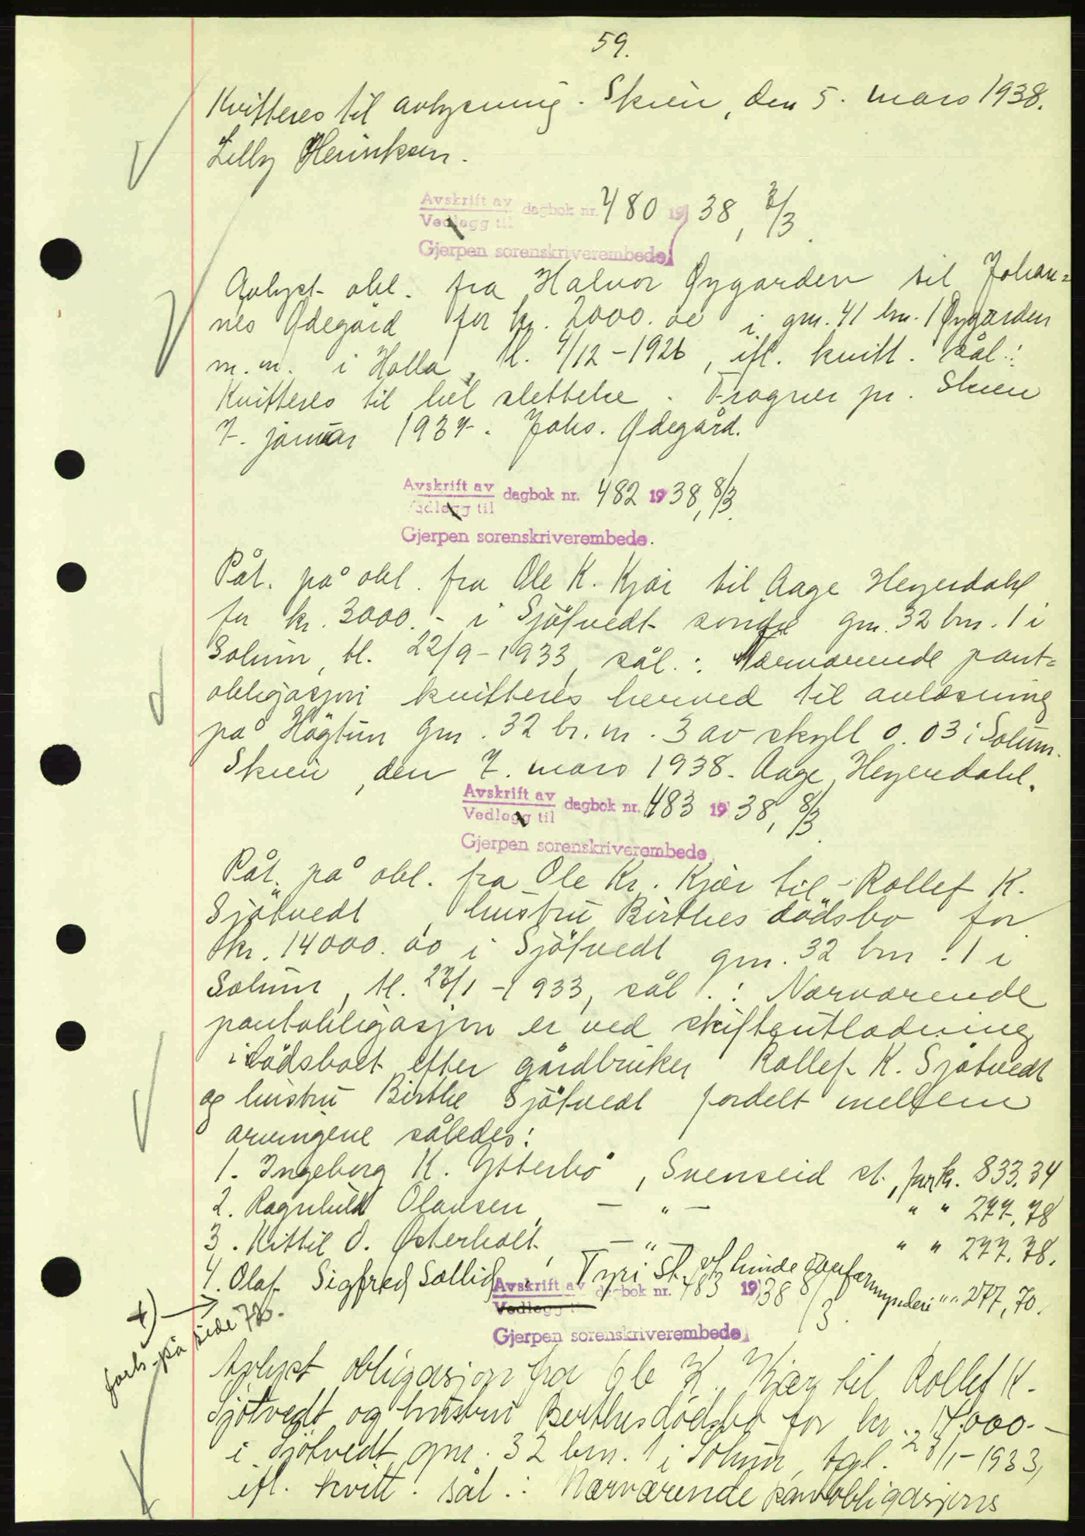 59.
Kvitteres til avlysning. Skien, den 5. mars 1938.
Lilly Henriksen.
Avskrift av
Vedlegg til dagbok nr. 480 1938, 8/3.
Gjerpen sorenskriverembede.
Avlyst obl. fra Halvor Øygarden til Johan=
nes Ødegård for kr. 2000.00 i gnr. 41 bnr. 1 Øygarden
m.m. i Holla, tl. 4/12-1926, ifl. kvitt. sål.:
Kvitteres til hel slettelse. Frogner pr. Skien
7. januar 1937. Johs. Ødegård.
Avskrift av
Vedlegg til dagbok nr. 482 1938, 8/3.
Gjerpen sorenskriverembede.
Påt. på obl. fra Ole K. Kjær til Aage Heyerdahl
for kr. 3000.- i Sjøtvedt søndre gnr. 32 bnr. 1 i
Solum, tl. 22/9-1933, sål.: Nærværende pant=
obligasjon kvitteres herved til avløsning
på Høgtun gnr. 32 br.nr. 3 av skyll 0.03 i Solum.
Skien, den 7. mars 1938. Aage Heyerdahl.
Avskrift av
Vedlegg til dagbok nr. 483 1938, 8/3.
Gjerpen sorenskriverembede.
Påt. på obl. fra Ole Kr. Kjær til Rollef K.
Sjøtvedt, hustru Birthes dødsbo for
kr. 14000.00 i Sjøtvedt gnr. 32 bnr. 1 i
Solum, tl. 23/1-1933, sål.: Nærværende
pantobligasjon er ved skifteutlodning
i dødsboet efter gårdbruker Rollef K. Sjøtvedt
og hustru Birthe Sjøtvedt fordelt mellem
arvingene således:
1. Ingeborg K. Ytterbø, Svenseid st., for kr. 833.34
2. Ragnhild Olausen, — " — " " 277,78
3. Kittil O. Østerholt, — " — " " 277.78.
4. Olaf Sigfred Sollid, Tyri St. " " 277,70.
Avskrift av
Vedlegg til dagbok nr. 483 1938 8/3.
Gjerpen sorenskriverembede.
+) →
forts. på side 70.
Avlyst obligasjon fra Ole K. Kjær til Rollef K.
Sjøtvedt og hustru Berthes dødsbo for kr. 14.000.-
i Sjøtvedt, gnr. 32 bnr. 1 i Solum, tgl. 23/1-1933,
ifl. kvitt. sål.: Nærværende pantobligasjons